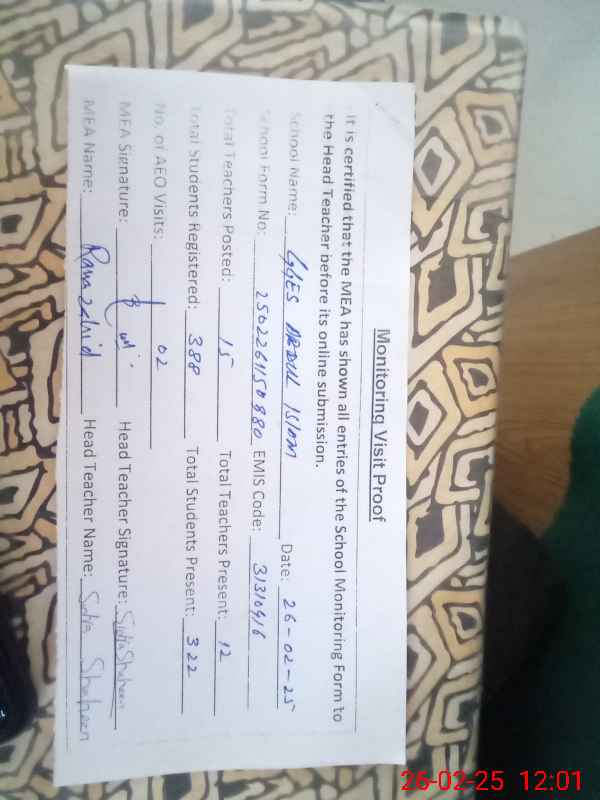 Monitoring Visit Proof
It is certified that the MEA has shown all entries of the School Monitoring Form to
the Head Teacher before its online submission.
School Name: GGES ISLAM Date: 26-02-25
School Form No: 250226150880 EMIS Code: 31310416
Total Teachers Posted: 15 Total Teachers Present: 12
Total Students Registered: 388 Total Students Present: 322
No. of AEO Visits: 02
MEA Signature: Head Teacher Signature: Shaheen
MEA Name: Rana Zahid Head Teacher Name: Shaheen
26-02-25 12:01